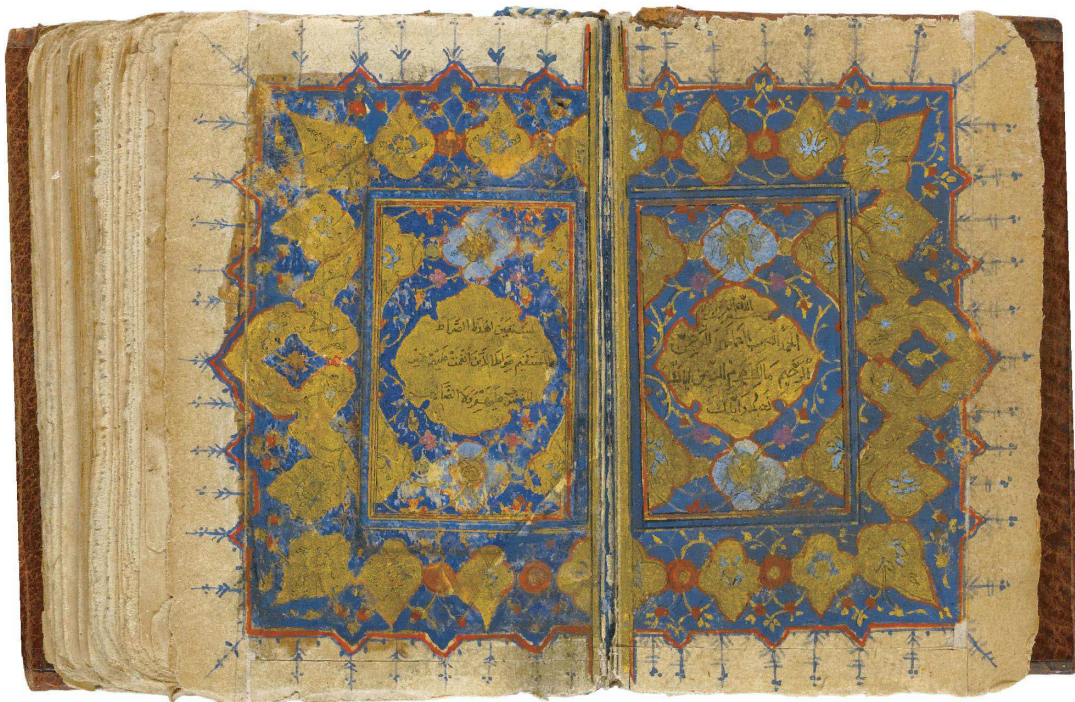 الحمد لله رب العالمين الرحمن
الرحيم مالك يوم الدين اياك
نعبد واياك
نستعين اهدنا الصراط
المستقيم صراط الذين انعمت عليهم غير
المغضوب عليهم ولا الضالين